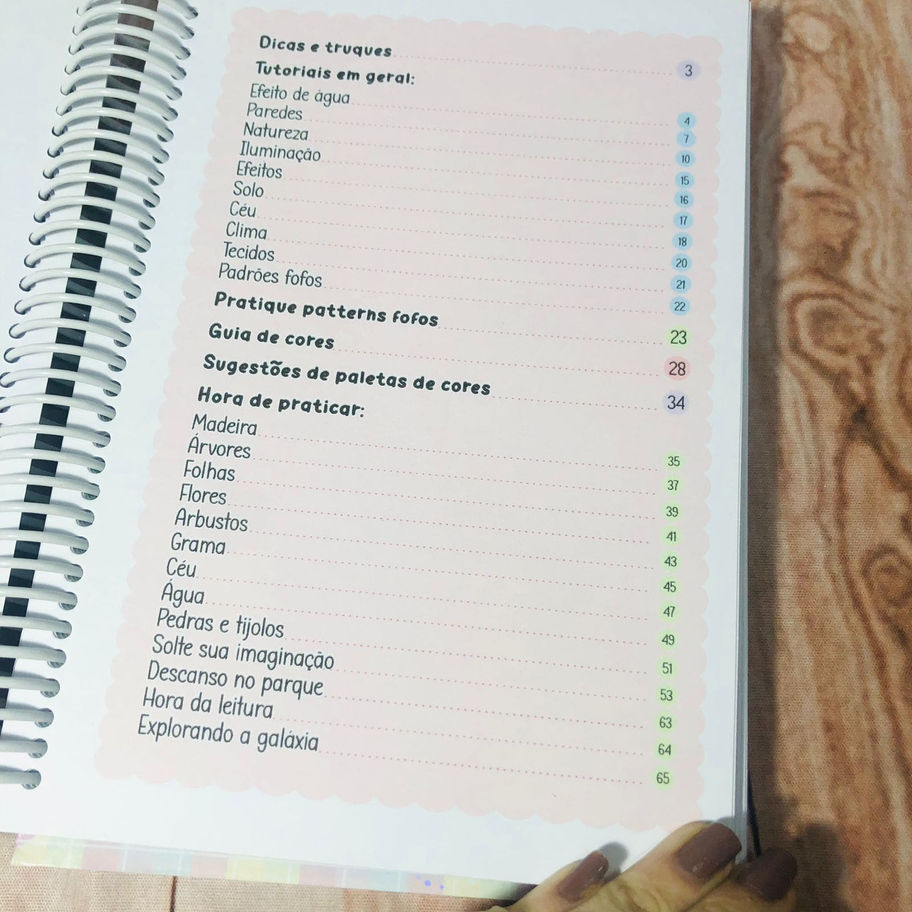 Dicas e truques 3
Tutoriais em geral:
Efeito de água 4
Paredes 7
Natureza 10
Iluminação 15
Efeitos 16
Solo 17
Céu 18
Clima 20
Tecidos 21
Padrões fofos 22
Pratique patterns fofos 23
Guia de cores 28
Sugestões de paletas de cores 34
Hora de praticar:
Madeira 35
Árvores 37
Folhas 39
Flores 41
Arbustos 43
Grama 45
Céu 47
Água 49
Pedras e tijolos 51
Solte sua imaginação 53
Descanso no parque 63
Hora da leitura 64
Explorando a galáxia 65